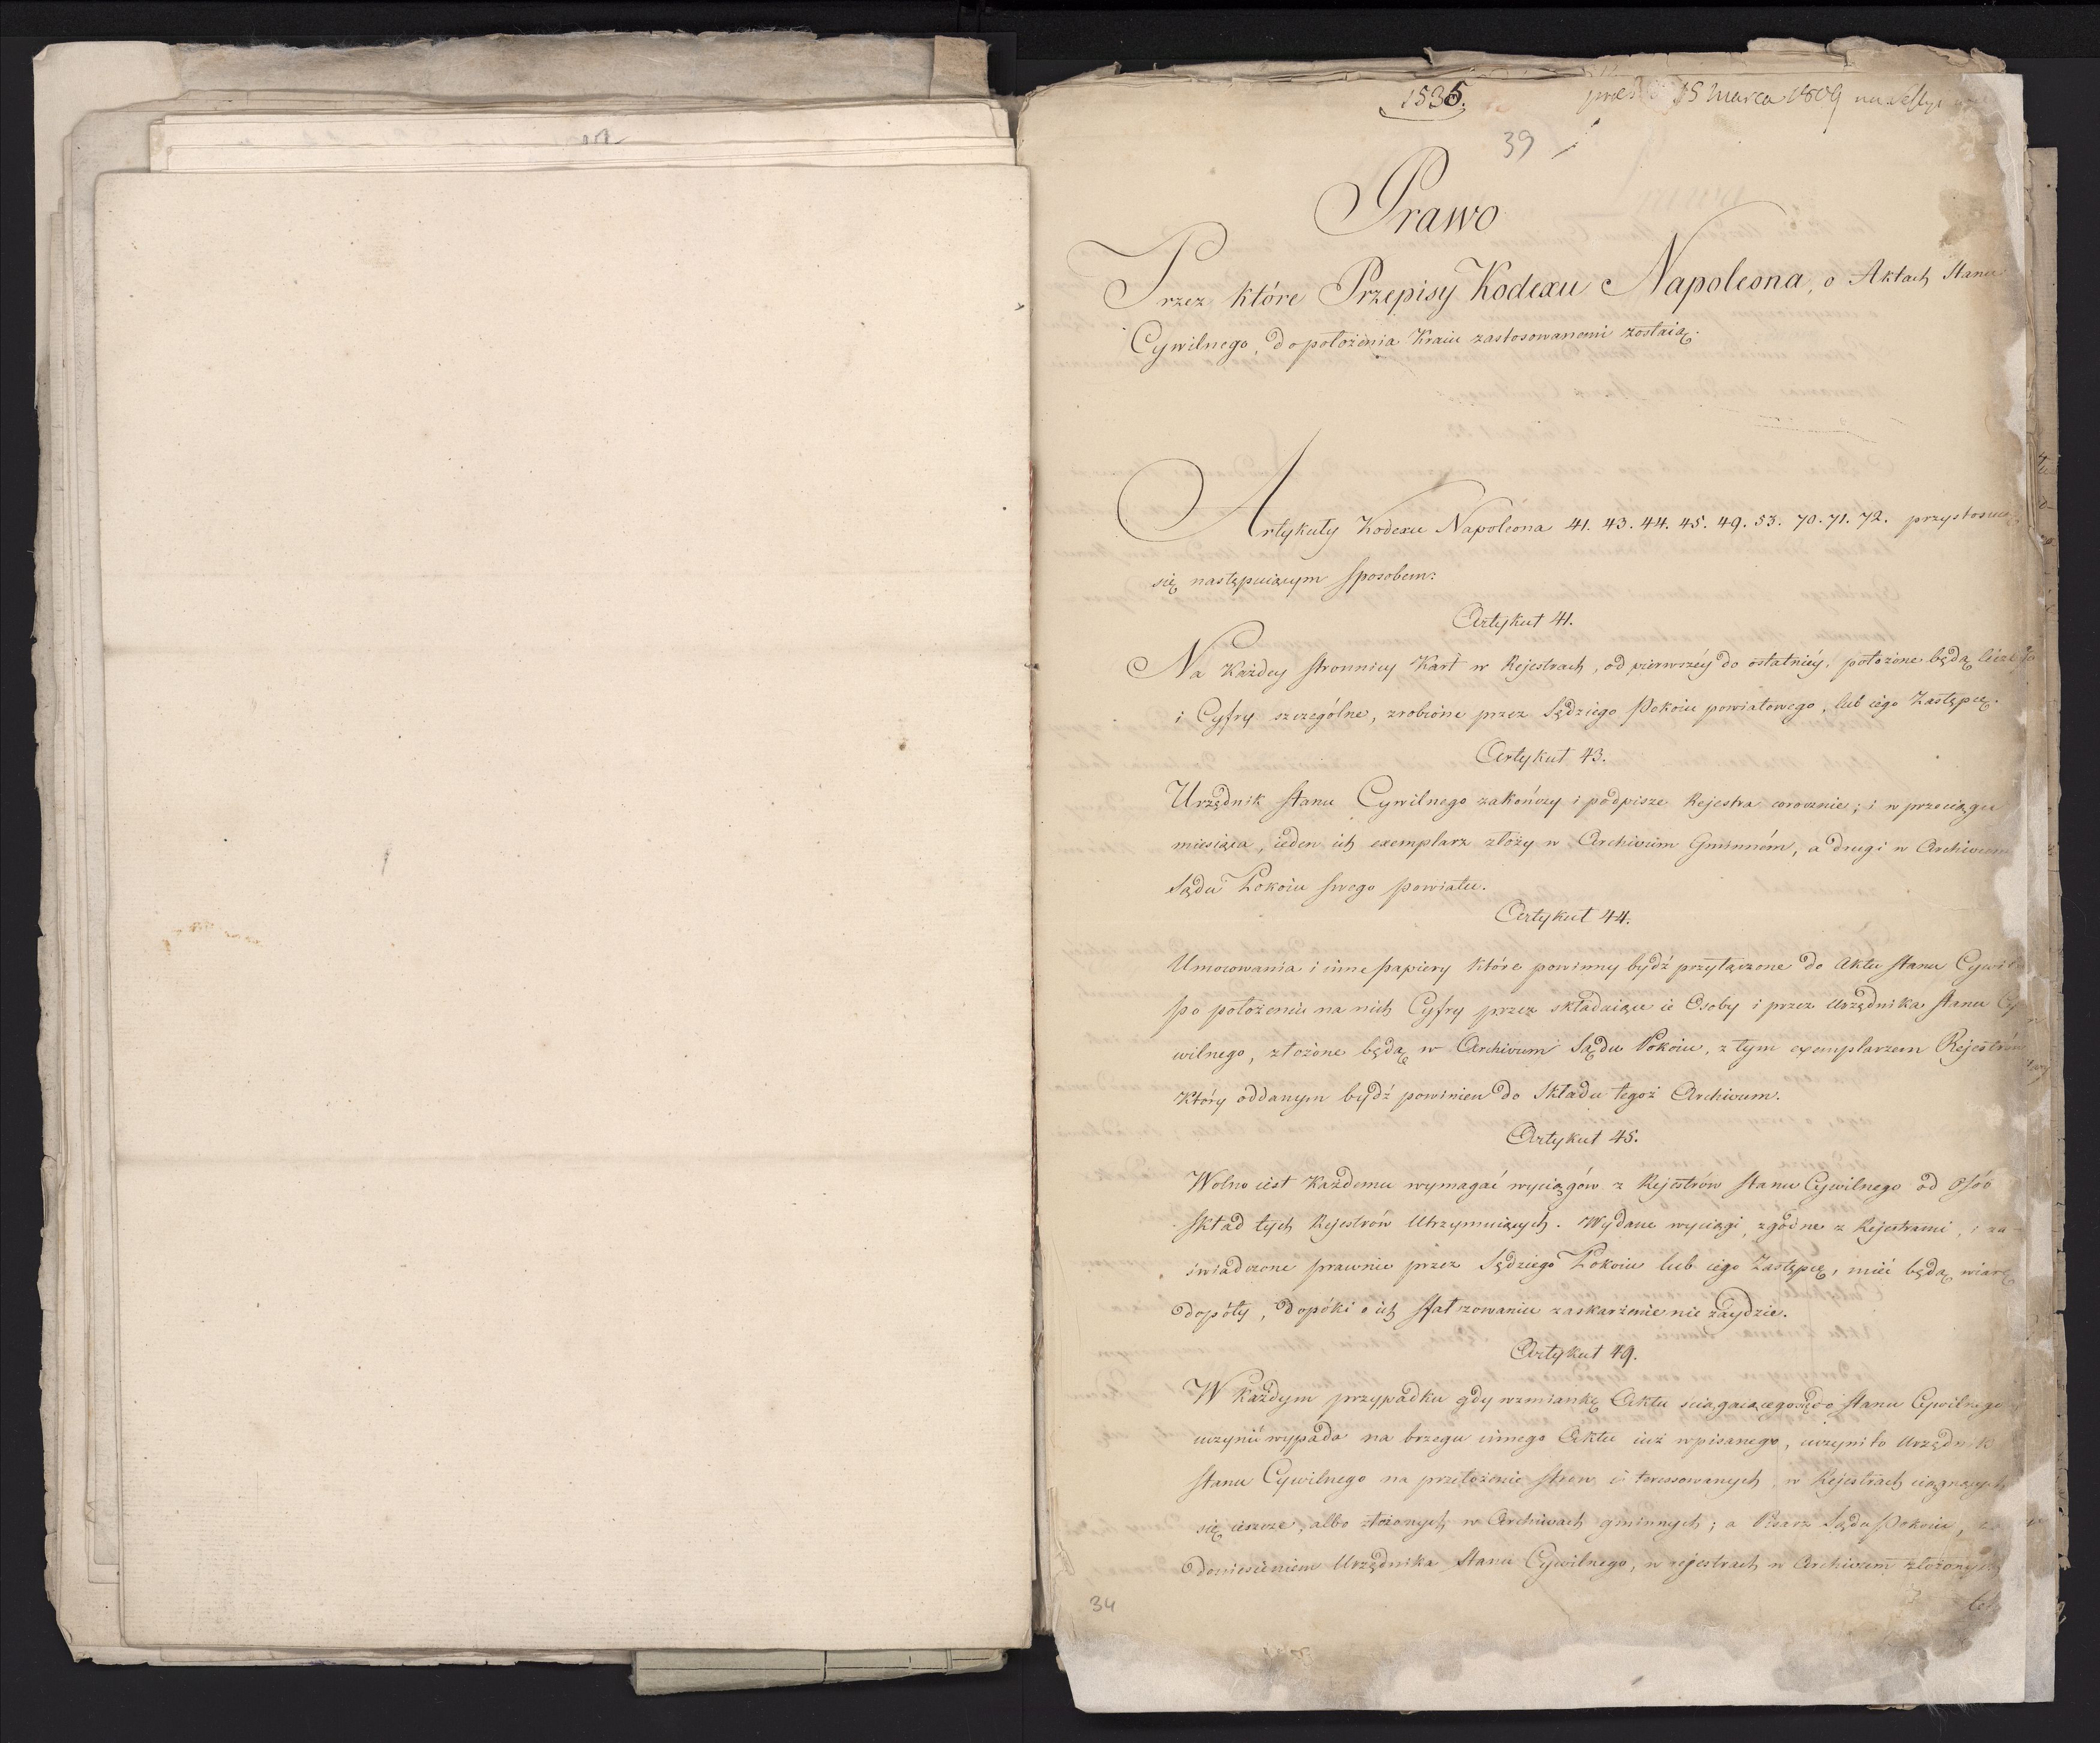 1535.
15 Marca 1809 na
39
Prawo
Przez które Przepisy Kodexu Napoleona, o Aktach Stanu
Cywilnego, do położenia Kraiu zastosowanemi zostaią.
Artykuły Kodexu Napoleona 41. 43. 44. 45. 49. 53. 70. 71. 72. przystosuią
się następuiącym sposobem:
Artykuł 41.
Na Każdey stronnicy Kart w Rejestrach, od pierwszéy do ostatniéy, położone będą liczby
i Cyfry szczególne, zrobione przez Sędziego Pokoiu powiatowego, lub iego Zastępcę.
Artykuł 43.
Urzędnik Stanu Cywilnego zakończy i podpisze Rejestra corocznie; i w przeciągu
miesiąca, ieden ich exemplarz złoży w Archivum Gminném, a drugi w Archivum
Sądu Pokoiu swego powiatu.
Artykuł 44.
Umocowania i inne papiery które powinny bydź przyłączone do Aktu Stanu Cywil
po położeniu na nich Cyfry przez składaiące ie Osoby i przez Urzędnika Stanu Cy
wilnego, złożone będą w Archivum Sądu Pokoiu, z tym exemplarzem Rejestrów
Który oddanym bydź powinien do Składu tegoż Archivum.
Artykuł 45.
Wolno iest Każdemu wymagać wyciągów z Rejestrów Stanu Cywilnego od Osób
skład tych Rejestrów Utrzymuiących. Wydane wyciągi, zgodne z Rejestrami, i za-
świadczone prawnie przez Sędziego Pokoiu lub iego Zastępcę, mieć będą wiarę
dopóty, dopóki o ich sfałszowaniu zaskarżenie nie zaydzie.
Artykuł 49.
W Każdym przypadku gdy wzmiankę Aktu sciągaiącego się do Stanu Cywilnego
uczynić wypada na brzegu innego Aktu iuż wpisanego, uczyni to Urzędnik
Stanu Cywilnego na przełożenie stron interessowanych, w Rejestrach ciągnących
się ieszcze, albo złożonych w Archivach gminnych; a Pisarz Sądu Pokoiu, za
doniesieniem Urzędnika Stanu Cywilnego, w rejestrach w Archivum złożonych
34